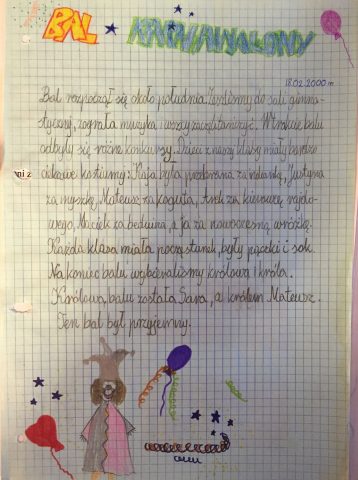 BAL KARNAWAŁOWY
18.02.2000 m
Bal rozpoczął się około południa. Zeszliśmy do sali gimna-
stycznej, zagrała muzyka i wszyscy zaczęli tańczyć. W trakcie balu
odbyły się różne konkursy. Dzieci z naszej klasy miały bardzo
ciekawe kostiumy: Kaja była przebrana za
ni z
Justyna
za myszkę, Mateusz za koguta, Arek za kierowcę rajdo-
wego, Maciek za beduina, a ja za nowoczesną wróżkę.
Każda klasa miała poczęstunek, były pączki i sok.
Na koniec balu wybieraliśmy królową i króla.
Królową balu została Sara, a królem Mateusz.
Ten bal był przyjemny.